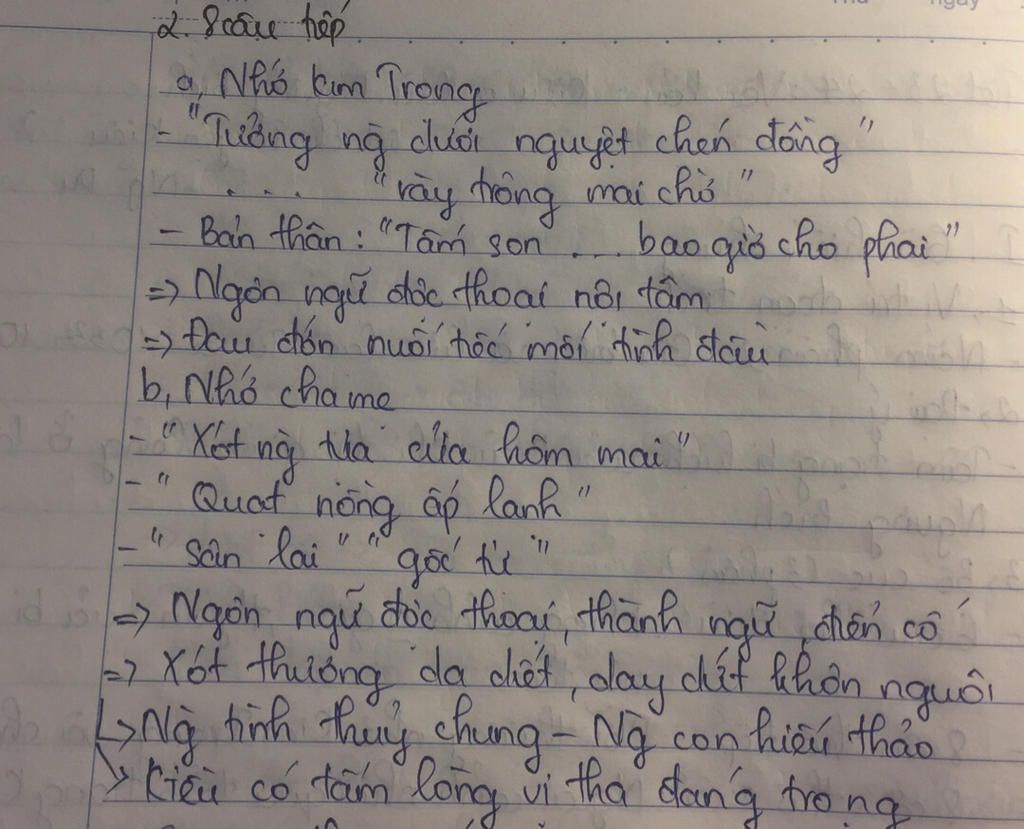 2. 8 câu tiếp
a, Nhớ Kim Trọng
- "Tưởng ng̀ dưới nguyệt chén đồng"
. . . "rày trông mai chờ"
- Bản thân : "Tấm son ... bao giờ cho phai"
=> Ngôn ngữ độc thoại nội tâm
=> Đau đớn nuối tiếc mối tình đầu
b, Nhớ cha mẹ
- "Xót ng̀ tựa cửa hôm mai"
- "Quạt nồng ấp lạnh"
- "Sân lai" "gốc tử"
=> Ngôn ngữ độc thoại, thành ngữ, điển cố
=> Xót thương da diết, day dứt khôn nguôi
↳> Ng̀ tình thuỷ chung - Ng̀ con hiếu thảo
↘ Kiều có tấm lòng vị tha đáng trọng